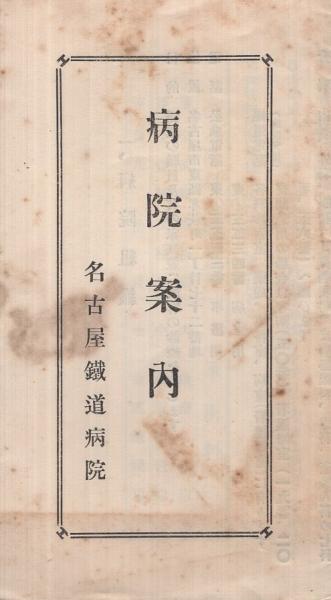 病院案内
名古屋鐵道病院